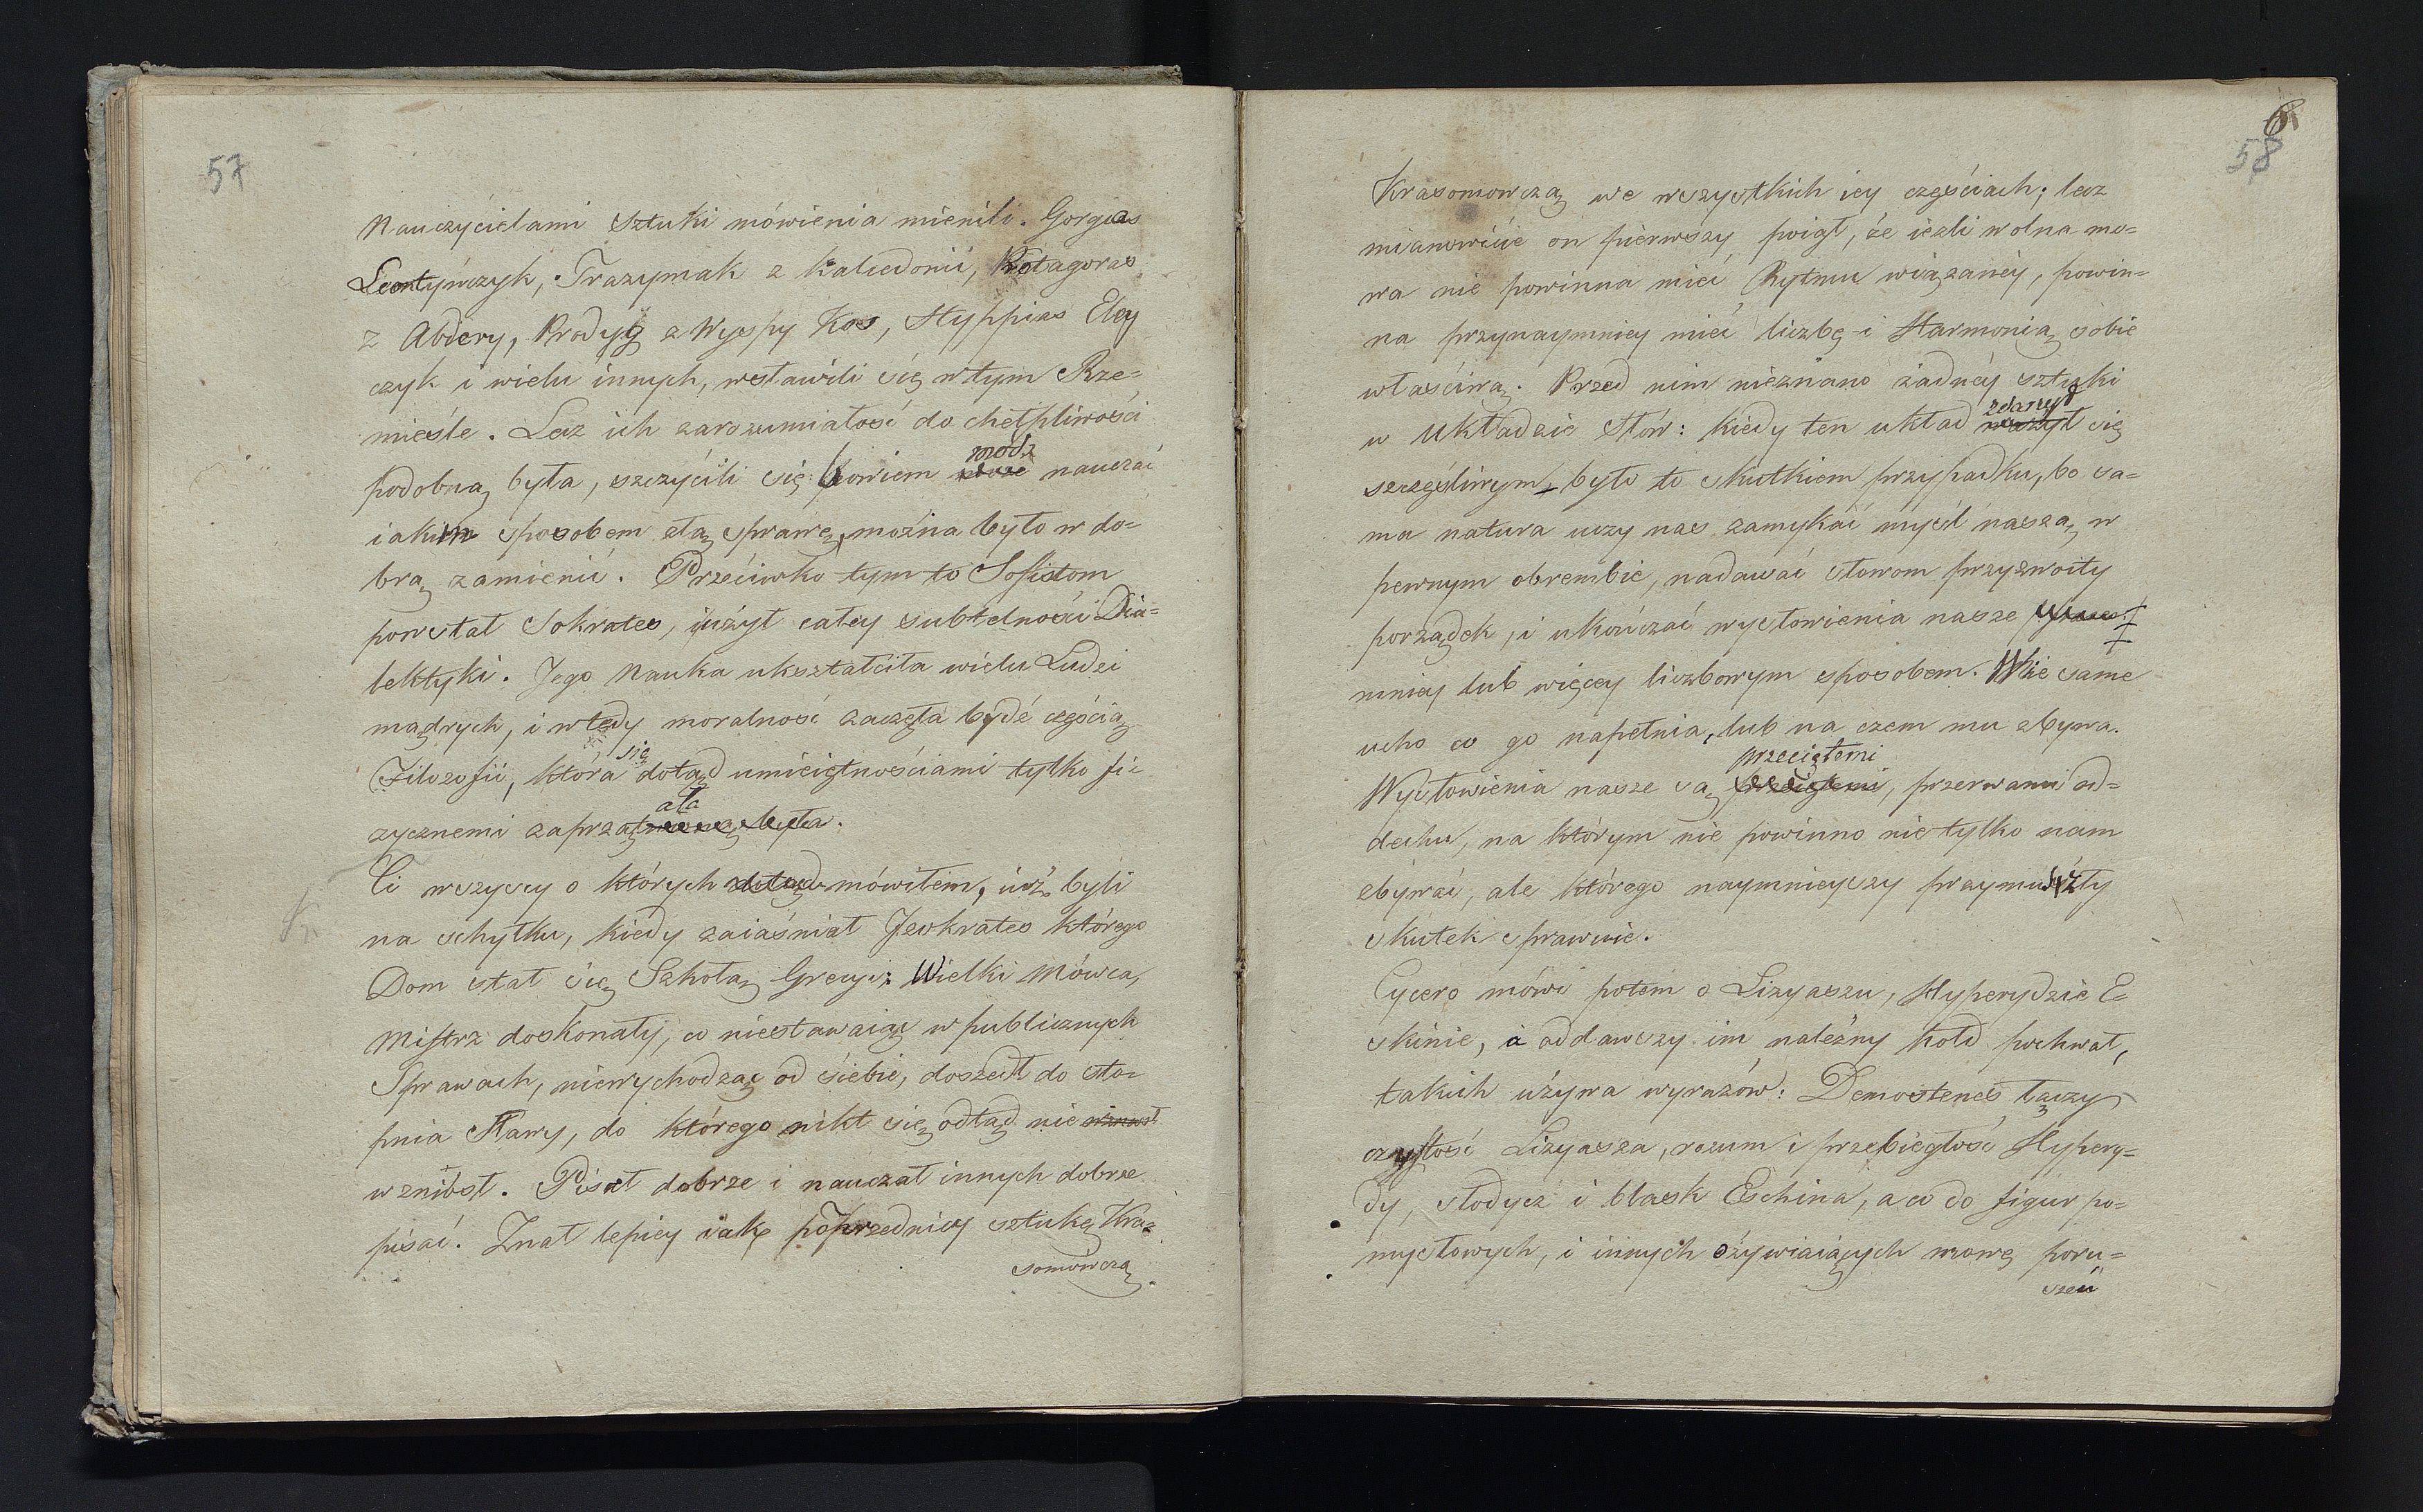 57
Nauczycielami Sztuki mówienia mienili. Gorgias
Leontyńczyk, Trazymak z Kalcedonii, Protagoras
z Abdery, Prodyg z Wyspy Kos, Hyppias Eley
czyk i wielu innych, wsławili się w tym Rze=
mieśle. Lecz ich zarozumiałość do chełpliwości
podobną była, szczycili się bowiem módz nauczać
iakim sposobem złą sprawę, można było w do=
brą zamienić. Przeciwko tym to Sofistom
powstał Sokrates, i użył całey subtelności Dia=
lektyki. Jego Nauka ukształciła wielu Ludzi
mądrych, i wtedy moralność zaczęła bydź częścią
Filozofii, która się dotąd umieiętnościami tylko fi=
zycznemi zaprzątała.
Ci wszyscy o których dotąd mówiłem, iuż byli
na schyłku, kiedy zaiaśniał Jzokrates którego
Dom stał się Szkołą Grecyi: Wielki Mówca,
Mistrz doskonały, co niestawaiąc w publicznych
Sprawach, niewychodząc od siebie, doszedł do sto=
pnia Sławy, do którego nikt się odtąd nie
wzniósł. Pisał dobrze i nauczał innych dobrze
pisać. Znał lepiey iak poprzednicy sztukę Kra=
somówczą
6
58
Krasomowczą we wszystkich iey częściach; lecz
mianowicie on pierwszy poiął, że iezli wolna mo=
wa nie powinna mieć Rytmu wiązaney, powin=
na przynaymniey mieć liczbę i Harmonią sobie
właściwą. Przed nim nieznano żadnéy sztuki
w Układzie Słów: kiedy ten układ zdarzył się
szczęśliwym, było to skutkiem przypadku, bo sa=
ma natura uczy nas zamykać myśl naszą w
pewnym obrembie, nadawać słowom przyzwoity
porządek, i ukończać wysłowienia nasze
mniey lub więcey liczbowym sposobem. Wie same
ucho co go napełnia, lub na czem mu zbywa.
Wysłowienia nasze są przeciętemi, przerwami od=
dechu, na którym nie powinno nie tylko nam
zbywać, ale którego naymnieyszy przymus zły
skutek sprawuie.
Cycero mówi potem o Lizyaszu, Hyperydzie E=
skinie, a oddawszy im należny hołd pochwał,
takich używa wyrazów: Demostenes łączy
czystość Lizyasza, rozum i przebiegłość Hypery=
dy, słodycz i blask Eschina, a co do figur po=
mysłowych, i innych ożywiaiących mowę poru=
szeń